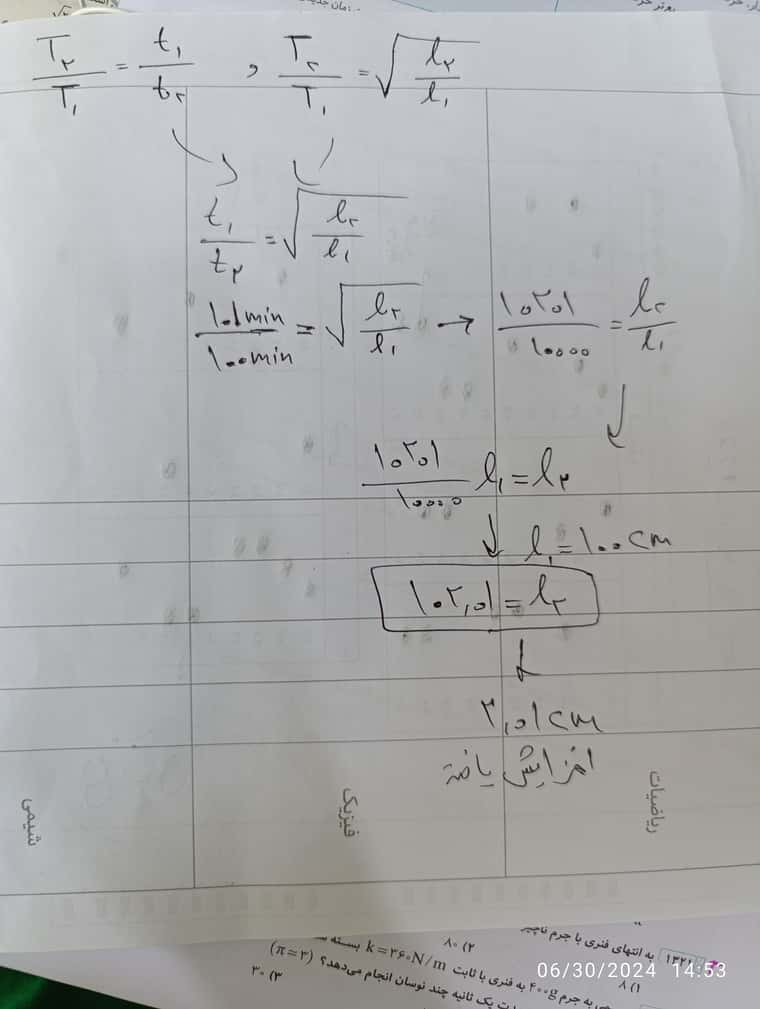 T۲/T۱ = t۱/t۲ , T۲/T۱ = √(l۲/l۱)
t۱/t۲ = √(l۲/l۱)
۱۰۱min/۱۰۰min = √(l۲/l۱) → ۱۰۲۰۱/۱۰۰۰۰ = l۲/l۱
۱۰۲۰۱/۱۰۰۰۰ l۱ = l۲
↓ l۱ = ۱۰۰cm
۱۰۲,۰۱ = l۲
↓
۲,۰۱cm
افزایش یافته
ریاضیات
فیزیک
شیمی
۱۳۲۱ به انتهای فنری با جرم ناچیز
۱) ۸
۲) ۸۰
به جرم ۴۰۰g به فنری با ثابت k=۳۶۰N/m بسته
ت یک ثانیه چند نوسان انجام می‌دهد؟ (π=۳)
۳) ۳۰
06/30/2024 14:53